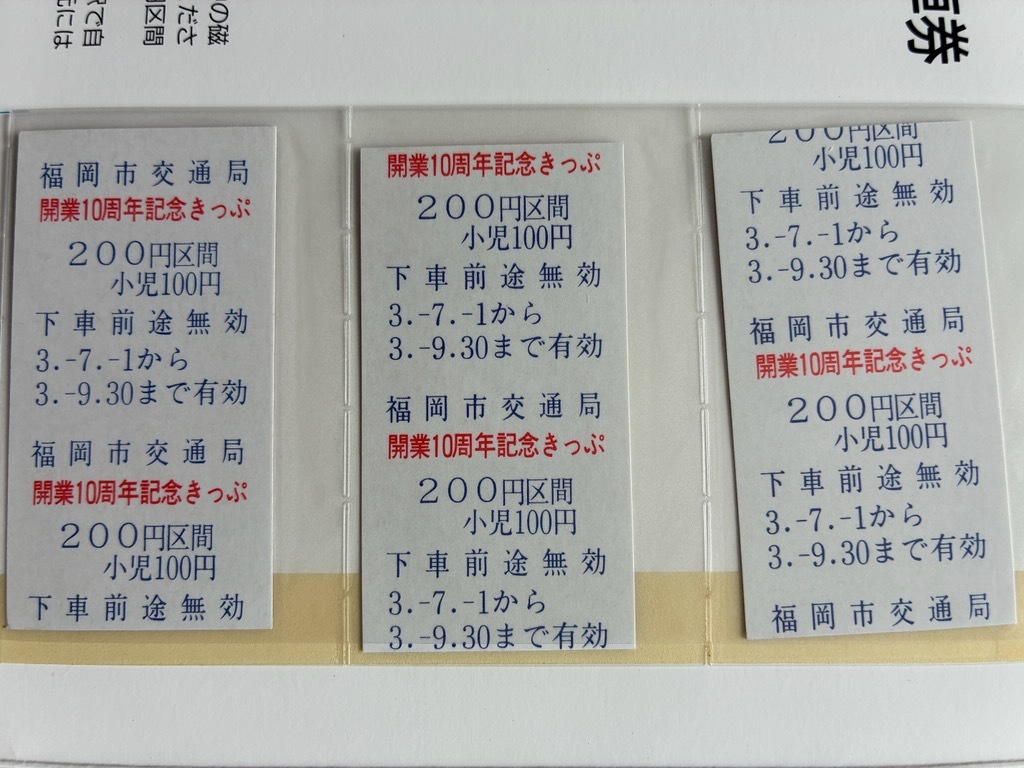 の磁
ださ
区間
で自
には
券
福岡市交通局
開業10周年記念きっぷ
200円区間
小児100円
下車前途無効
3.-7.-1から
3.-9.30まで有効
福岡市交通局
開業10周年記念きっぷ
200円区間
小児100円
下車前途無効
開業10周年記念きっぷ
200円区間
小児100円
下車前途無効
3.-7.-1から
3.-9.30まで有効
福岡市交通局
開業10周年記念きっぷ
200円区間
小児100円
下車前途無効
3.-7.-1から
3.-9.30まで有効
200円区間
小児100円
下車前途無効
3.-7.-1から
3.-9.30まで有効
福岡市交通局
開業10周年記念きっぷ
200円区間
小児100円
下車前途無効
3.-7.-1から
3.-9.30まで有効
福岡市交通局